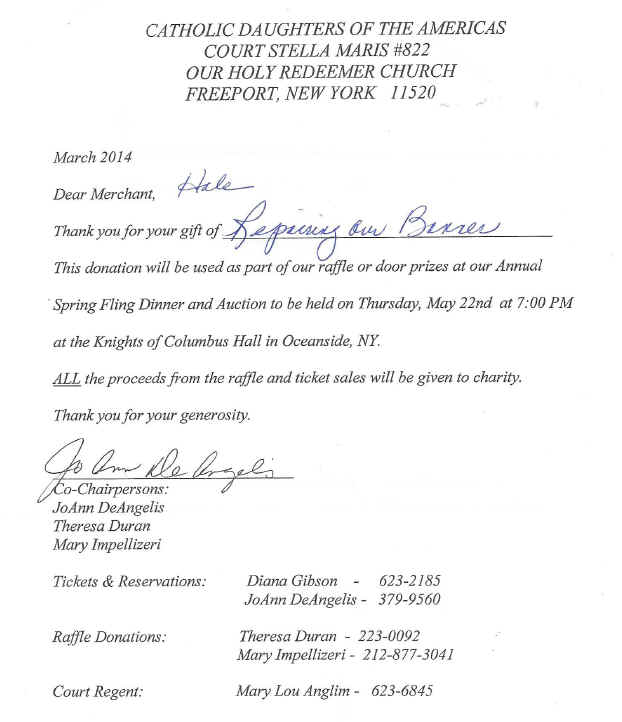 CATHOLIC DAUGHTERS OF THE AMERICAS
COURT STELLA MARIS #822
OUR HOLY REDEEMER CHURCH
FREEPORT, NEW YORK 11520
March 2014
Dear Merchant, Hale
Thank you for your gift of Repairing our Banner
This donation will be used as part of our raffle or door prizes at our Annual
Spring Fling Dinner and Auction to be held on Thursday, May 22nd at 7:00 PM
at the Knights of Columbus Hall in Oceanside, NY.
ALL the proceeds from the raffle and ticket sales will be given to charity.
Thank you for your generosity.
Jo Ann De Angelis
Co-Chairpersons:
JoAnn DeAngelis
Theresa Duran
Mary Impellizeri
Tickets & Reservations: Diana Gibson - 623-2185
JoAnn DeAngelis - 379-9560
Raffle Donations: Theresa Duran - 223-0092
Mary Impellizeri - 212-877-3041
Court Regent: Mary Lou Anglim - 623-6845